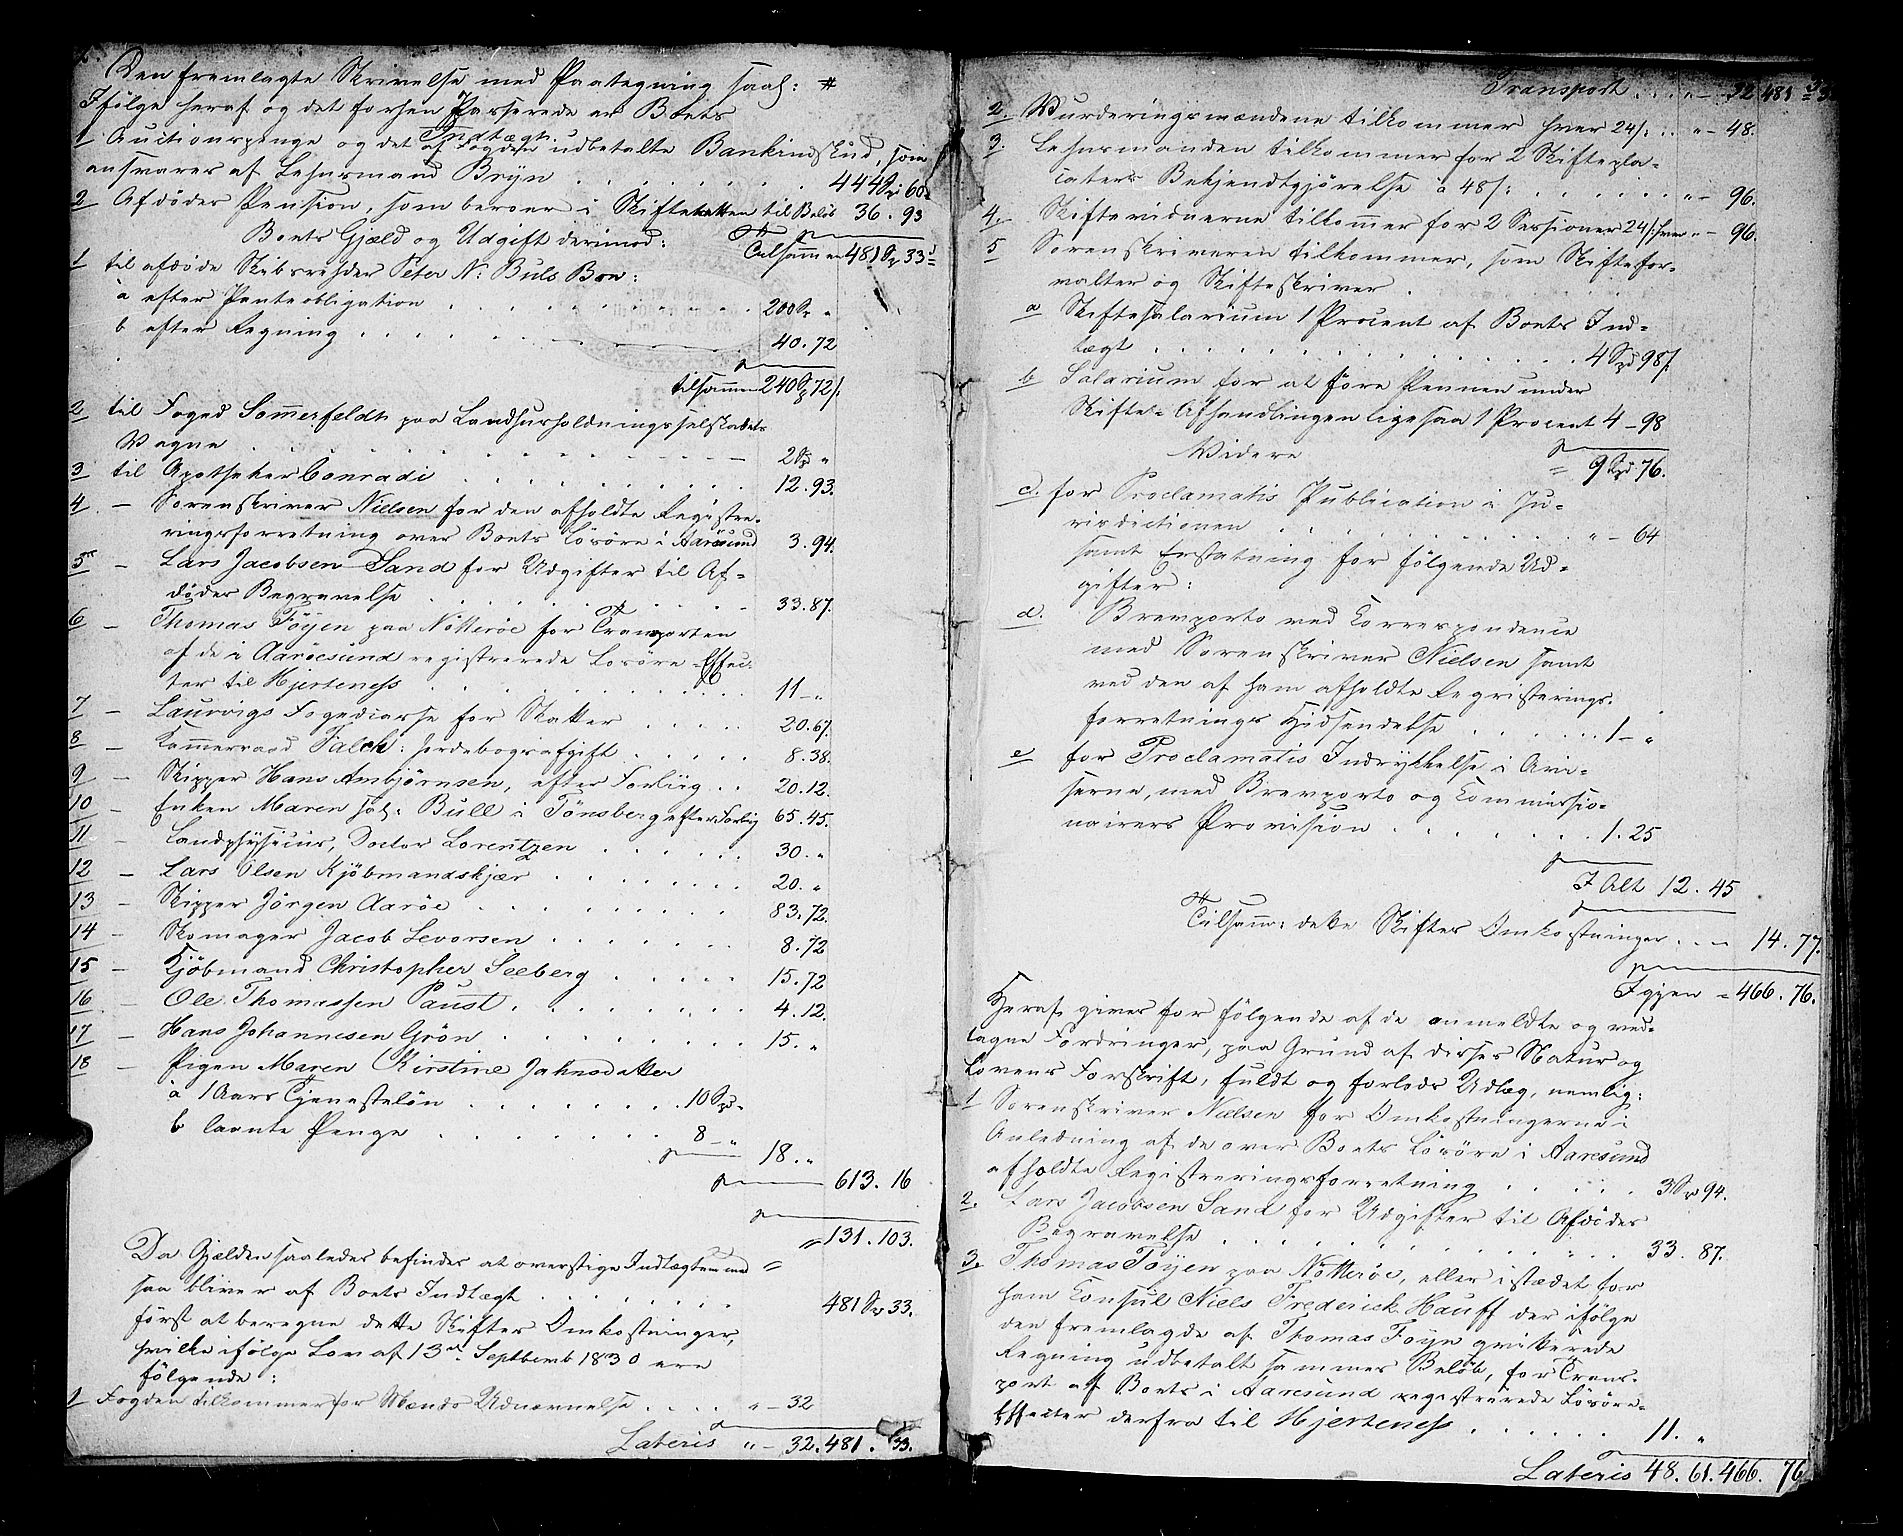 Den fremlagte Skrivelse med Paategning saal: #
Ifølge heraf og det forhen Passerede er Boets
Indtægt:
1 Auctionspenge og det af Fogden udbetalte Bankindskud, som
ansvares af Lehnsmand Bryn . . . . . . . . 444 Spd 60
2 Afdødes Pension, som beroer i Skiftekassen til Beløb 36. 93
Tilsammen 481 Spd 33
Boets Gjæld og Udgift derimod:
1 til afdøde Skibsrehder Peter N: Buls Boe:
a efter Panteobligation . . . . . . . . 200 Spd "
b efter Regning . . . . . . . . 40. 72
tilsammen 240 Spd 72 /:
2 til Foged Sommerfeldt paa Landhusholdningsselskabets
Vegne . . . . . . . . 2 Spd "
3 til Apotheker Conradi . . . . . . . . 12. 93.
4 – Sorenskriver Nielsen for den afholdte Registre-
ringsforretning over Boets Løsøre i Aarøesund 3. 94.
5 – Lars Jacobsen Sand for Udgifter til Af-
dødes Begravelse . . . . . . . . 33. 87.
6 – Thomas Føyen paa Nøtterøe for Transporten
af de i Aarøesund registrerede Løsøre-Effec-
ter til Hjerteness . . . . . . . . 11 – "
7 – Laurvigs Fogedcasse for Skatter . . . . 20. 67.
8 – Kammerraad Falch: Jordebogsafgift . . . . . 8. 38.
9 – Skipper Hans Ambjørnsen, efter Forliig . . 20. 12.
10 – Enken Maren sal: Bull i Tønsberg efter Forlig 65. 45.
11 – Landphysicus, Doctor Lorentzen . . . . . . 30. "
12 – Lars Olsen Kjøbmandskjær . . . . . . . 20. "
13 – Skipper Jørgen Aarøe . . . . . . . . 83. 72.
14 – Skomager Jacob Levorsen . . . . . . . 8. 72
15 – Kjøbmand Christopher Seeberg . . . . . 15. 72
16 – Ole Thomassen Paust . . . . . . . . 4. 12.
17 – Hans Johannesen Grøn . . . . . . . . 15. "
18 – Pigen Maren Kirstine Jahnsdatter
a 1 Aars Tjenesteløn . . . . . . . . 10 Spd "
b laante Penge . . . . . . . . 8 – "
18. "
613. 16
131. 103.
Da Gjælden saaledes befindes at overstige Indtægten med
saa bliver af Boets Indtægt . . . . . . . . 481 Spd 33.
først at beregne dette Skiftes Omkostninger,
hvilke ifølge Lov af 13de Septbemb 1830 ere
følgende:
1 Fogden tilkommer for Mænds Udnævnelse . . . . " – 32
Lateris " – 32. 481. 33.
Transport . . . " – 32 481 33
2. Vurderingsmændene tilkommer hver 24 /: . . " – 48.
3. Lehnsmanden tilkommer for 2 Skiftepla-
caters Bekjendtgjørelse à 48 /: . . . . . . . . " – 96.
4. Skiftevidnerne tilkommer for 2 Sessioner 24 /: hver " – 96.
5 Sorenskriveren tilkommer, som Skiftefor-
valter og Skifteskriver .
a Skiftesalarium 1 Procent af Boets Ind-
tægt . . . . . . . . . . 4 Spd 98 /.
b Salarium for at føre Pennen under
Skifte-Afhandlingen ligesaa 1 Procent 4 – 98
Videre = 9 Spd 76.
c. for Proclamatis Publication i Ju-
risdictionen . . . . . . . . . . " – 64
samt Erstatning for følgende Ud-
gifter:
d. Brevporto ved Correspondence
med Sorenskriver Nielsen samt
ved den af ham afholdte Registerings-
forretnings Hidsendelse . . . . . . . 1 – "
e for Proclamatis Indrykkelse i Avi-
serne, med Brevporto og Commissio-
nairers Provision . . . . . . . . 1. 25
I Alt 12. 45
Tilsamm: dette Skiftes Omkostninger . . – 14. 77.
Igjen = 466. 76.
Heraf gives for følgende af de anmeldte og ved-
tagne Fordringer, paa Grund af disses Natur og
Lovens Forskrift, fuldt og forlods Udlæg, nemlig:
1 Sorenskriver Nielsen for Omkostningerne i
Anledning af de over Boets Løsøre i Aarøesund
afholdte Registreringsforretning . . . . . 3 Spd 94.
2. Lars Jacobsen Sand for Udgifter til Afdødes
Begravelse . . . . . . . . . . 33. 87.
3. Thomas Føyen paa Nøtterøe, eller istædet for
ham Consul Niels Frederick Hauff der ifølge
den fremlagde af Thomas Føyn qvitterede
Regning udbetalt sammes Beløb, for Trans-
port af Boets i Aarøesund registrerede Løsøre-
Effecter derfra til Hjerteness . . . . . . 11. "
Lateris 48. 61. 466. 76